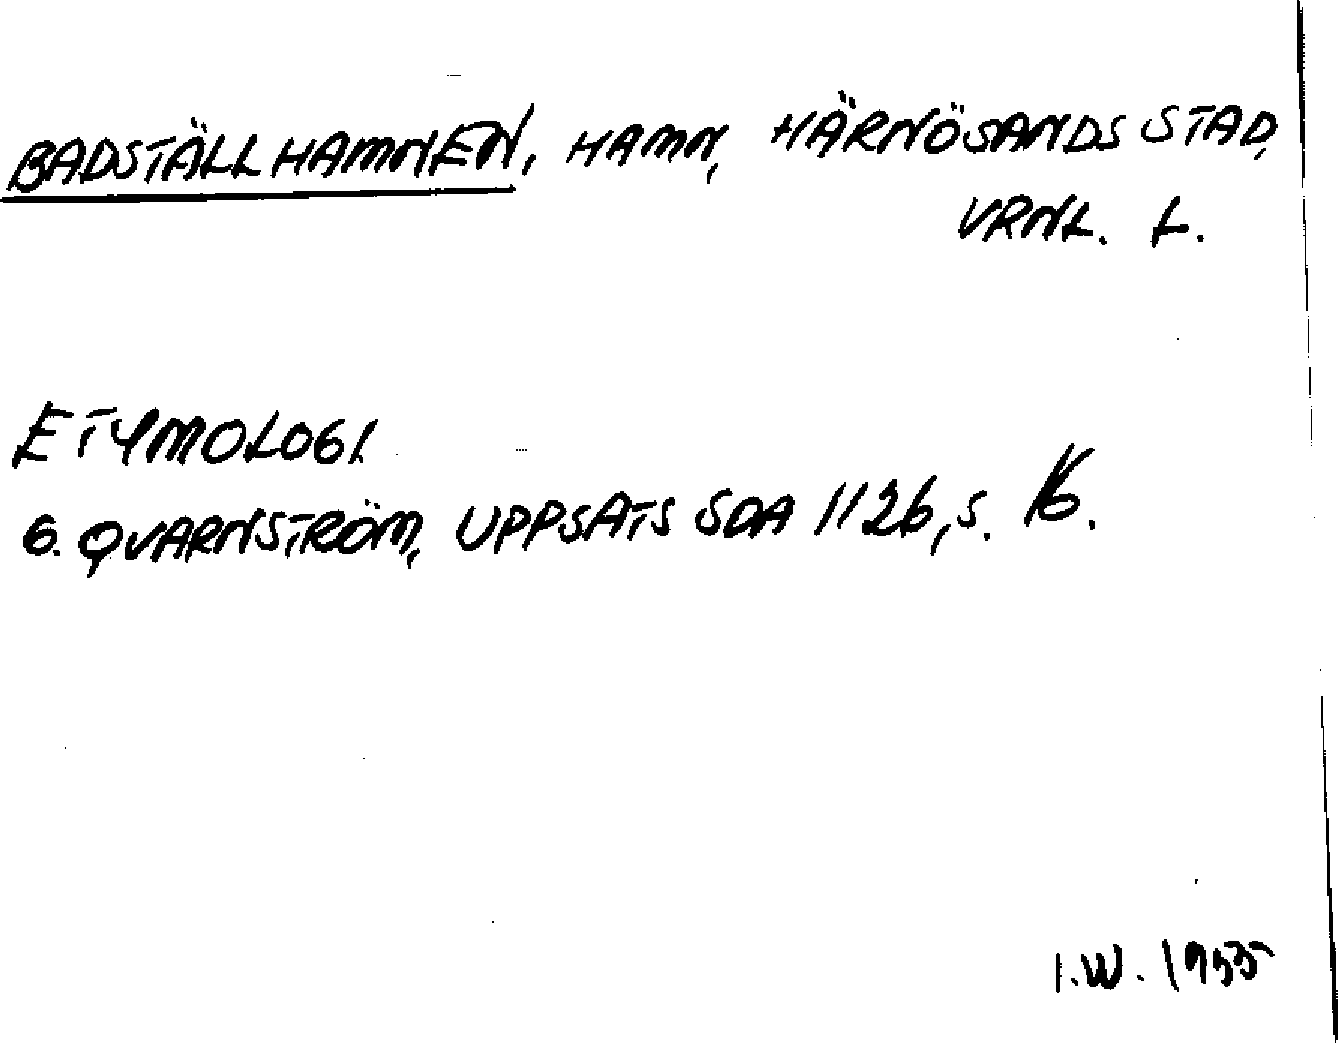 BADSTÄLLHAMNEN, HAMN, HÄRNÖSANDS STAD,
VRNL. L.
ETYMOLOGI
G. QVARNSTRÖM, UPPSATS SOA 1126, s. 16.
I.W. 1955